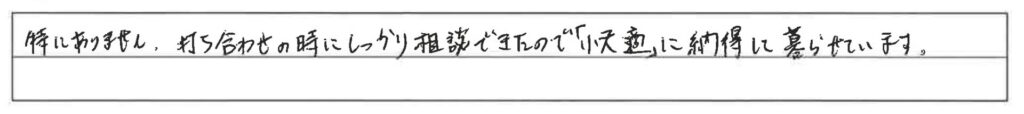 特にありません。打ち合わせの時にしっかり相談できたので「快適」に納得して暮らせています。